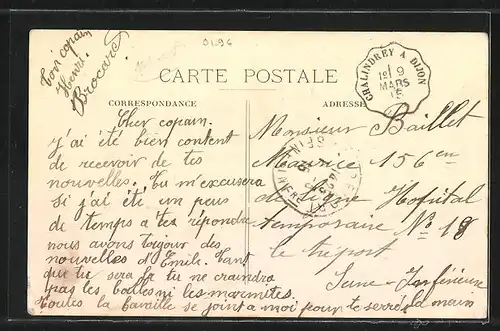 Ton copain
Henri.
Brocard.
0196
CARTE POSTALE
CORRESPONDANCE
ADRESSE
CHALINDREY A DIJON
19 9
MARS
15
Cher copain.
j'ai été bien content
de recevoir de tes
nouvelles. Tu m'excusera
si j'ai été un peus
de temps a tes répondre
nous avons toujour des
nouvelles d'Emile. Tant
que tu sera la tu ne craindra
pas les balles ni les marmites.
Toutes la famille se joint a moi pour te serrés la main
Monsieur Baillet
Maurice 156 em
de ligne Hopital
temporaire No 18
le tréport
Seine-Inférieure